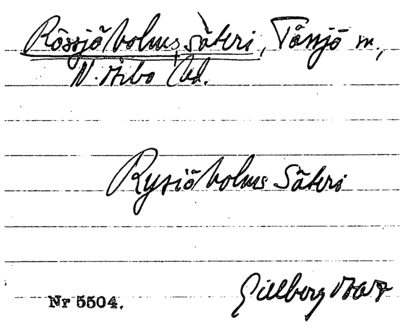 Rössjöholms säteri, Tåssjö sn,
N. Åsbo hd.
Rysiöholms Säteri
Gillberg
Nr 5504.